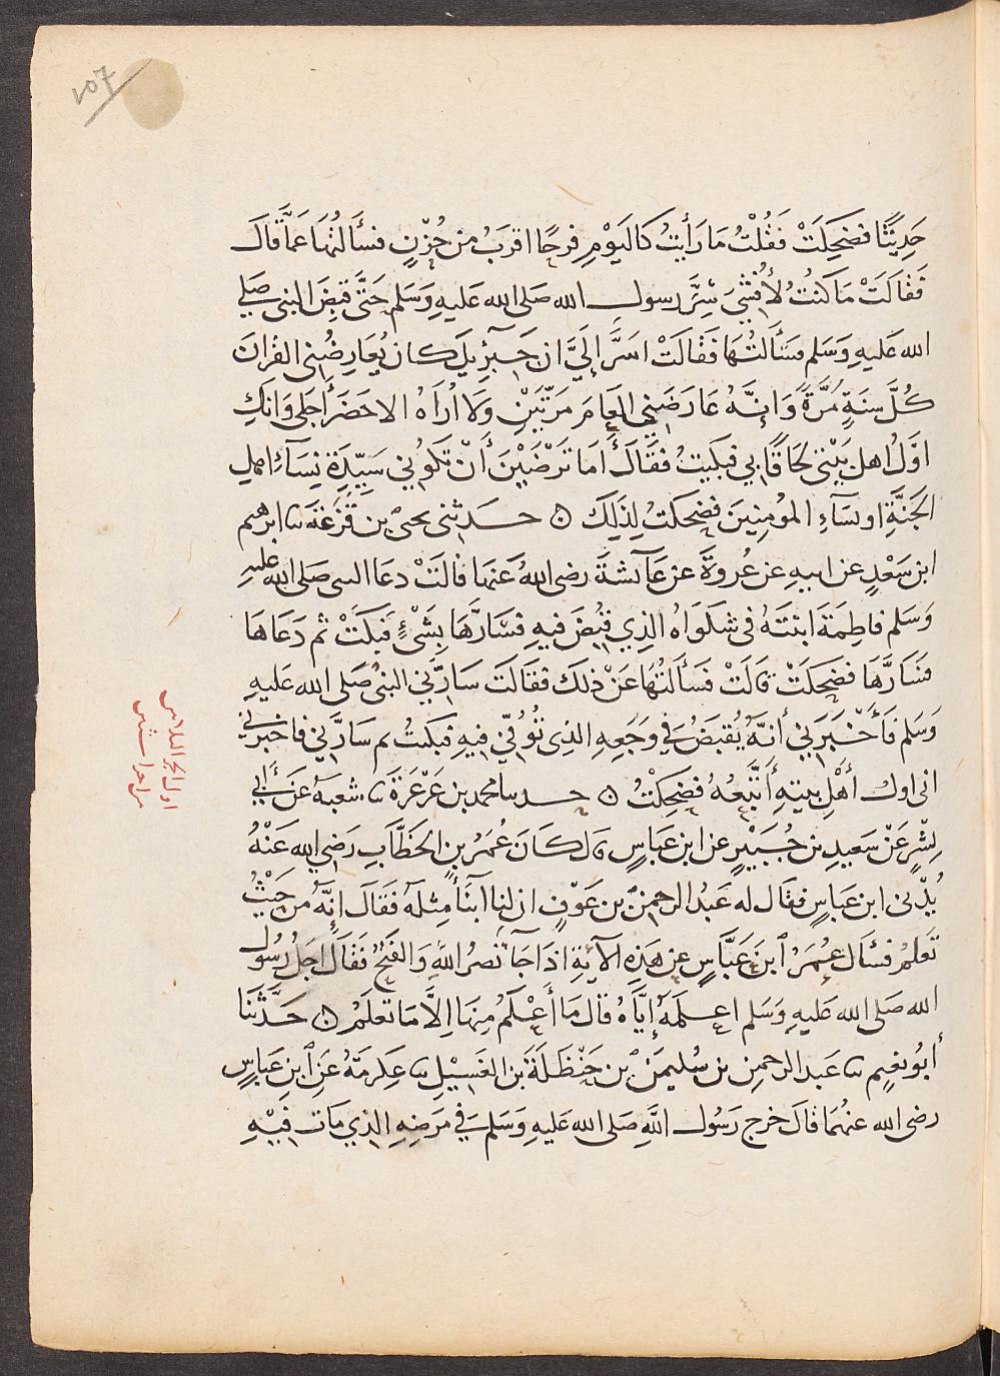 ١٥٧
حَدِيثًا فضَحِكَتْ فَقُلْتُ مَا رَأيتُ كاليَوْمِ فرحًا اقربَ من حُزْنٍ فسَأَلتُهَا عمَّا قَالَ
فَقَالَتْ مَا كُنتُ لأُفْشِيَ سِرَّ رسول الله صَلى الله عَليهِ وَسَلم حَتَّى قبِضَ النبى صَلى
الله عَليهِ وَسَلم فسَأَلتُهَا فَقَالَتْ اسَرَّ إلَيَّ ان جِبرِيلَ كان يُعَارِضُنِى القُرانَ
كُلَّ سنَةٍ مَرَّةً وَإنَّهُ عَارَضَنِي العَامَ مَرَّتَيْنِ وَلَا أُرَاهُ الا حَضَرَ أجَلى وَانكِ
اوَّلُ اهل بَيْتى لحَاقًا بي فبكيتُ فقَالَ أمَا تَرْضَيْنَ أنْ تَكوُنِي سَيِّدَةَ نِسَآءِ اهل
الجَنَّةِ او نسَآءِ المؤمِنِينَ فضَحِكتُ لِذَلِكَ ۝ حَدثنى يحيى بن قَزَعَةَ نا ابرهيم
ابن سَعْدٍ عن ابيهِ عن عُروَةَ عن عَآئشةَ رضى اللهُ عَنهَا قالَتْ دعَا النبى صَلى الله عليه
وَسَلم فاطِمَةَ ابنَتَهُ فى شكوَاهُ الذِي قبِضَ فيهِ فسَارَّهَا بِشَىْءٍ فبَكَتْ ثم دَعَاهَا
فسَارَّهَا فضَحِكَتْ قَالَتْ فسَأَلتُهَا عَنْ ذلكَ فقَالَت سَارَّنِي النبىُ صَلى الله عَليهِ
وَسَلم فَأخْبَرَنِي أنهُ يُقبَضُ فِي وَجَعِهِ الذِى تُوُفّيَ فِيهِ فبَكيتُ ثم سَارَّنِي فاخبرنى
انى اولُ أهْلِ بيتِهِ أتْبَعُهُ فضَحِكْتُ ۝ حدثنا محمد بن عَرْعَرَةَ نا شعبه عَن أبي
بِشْرٍ عَنْ سَعِيدِ بن جُبَيْرٍ عن ابن عَبَّاسٍ قال كَانَ عُمَرُ بن الخَطَّابِ رَضِي الله عَنْهُ
يُدْنى ابن عَبَاسٍ فقَال له عَبدُ الرحمنِ بن عَوْفٍ ان لنا أبنَاءً مِثلَهُ فَقَالَ إنَّهُ من حَيْثُ
تَعلَمُ فسَأَلَ عُمَرُ ابنَ عَبَّاسٍ عن هَذِهِ الآيَةِ اذَا جَآءَ نَصرُ اللهِ وَالفَتحُ فَقَالَ اجَلُ رسُول
الله صَلى الله عَليهِ وَسَلم اعلَمَهُ إيَّاهُ قالَ مَا أعْلَمُ مِنهَا إلَّا مَا تَعلَمُ ۝ حَدَّثَنَا
أبُو نعَيمٍ نا عَبد الرحمن بن سُليمنَ بن حَنْظَلَةَ بن الغَسِيْلِ نا عِكرِمَةُ عَنِ ابنِ عَبَّاسٍ
رضى الله عنهُمَا قالَ خرج رَسُول اللهِ صَلى الله عَليهِ وَسَلم فِي مَرَضِهِ الذِي مَاتَ فِيْهِ
اول الجزء
من احزا